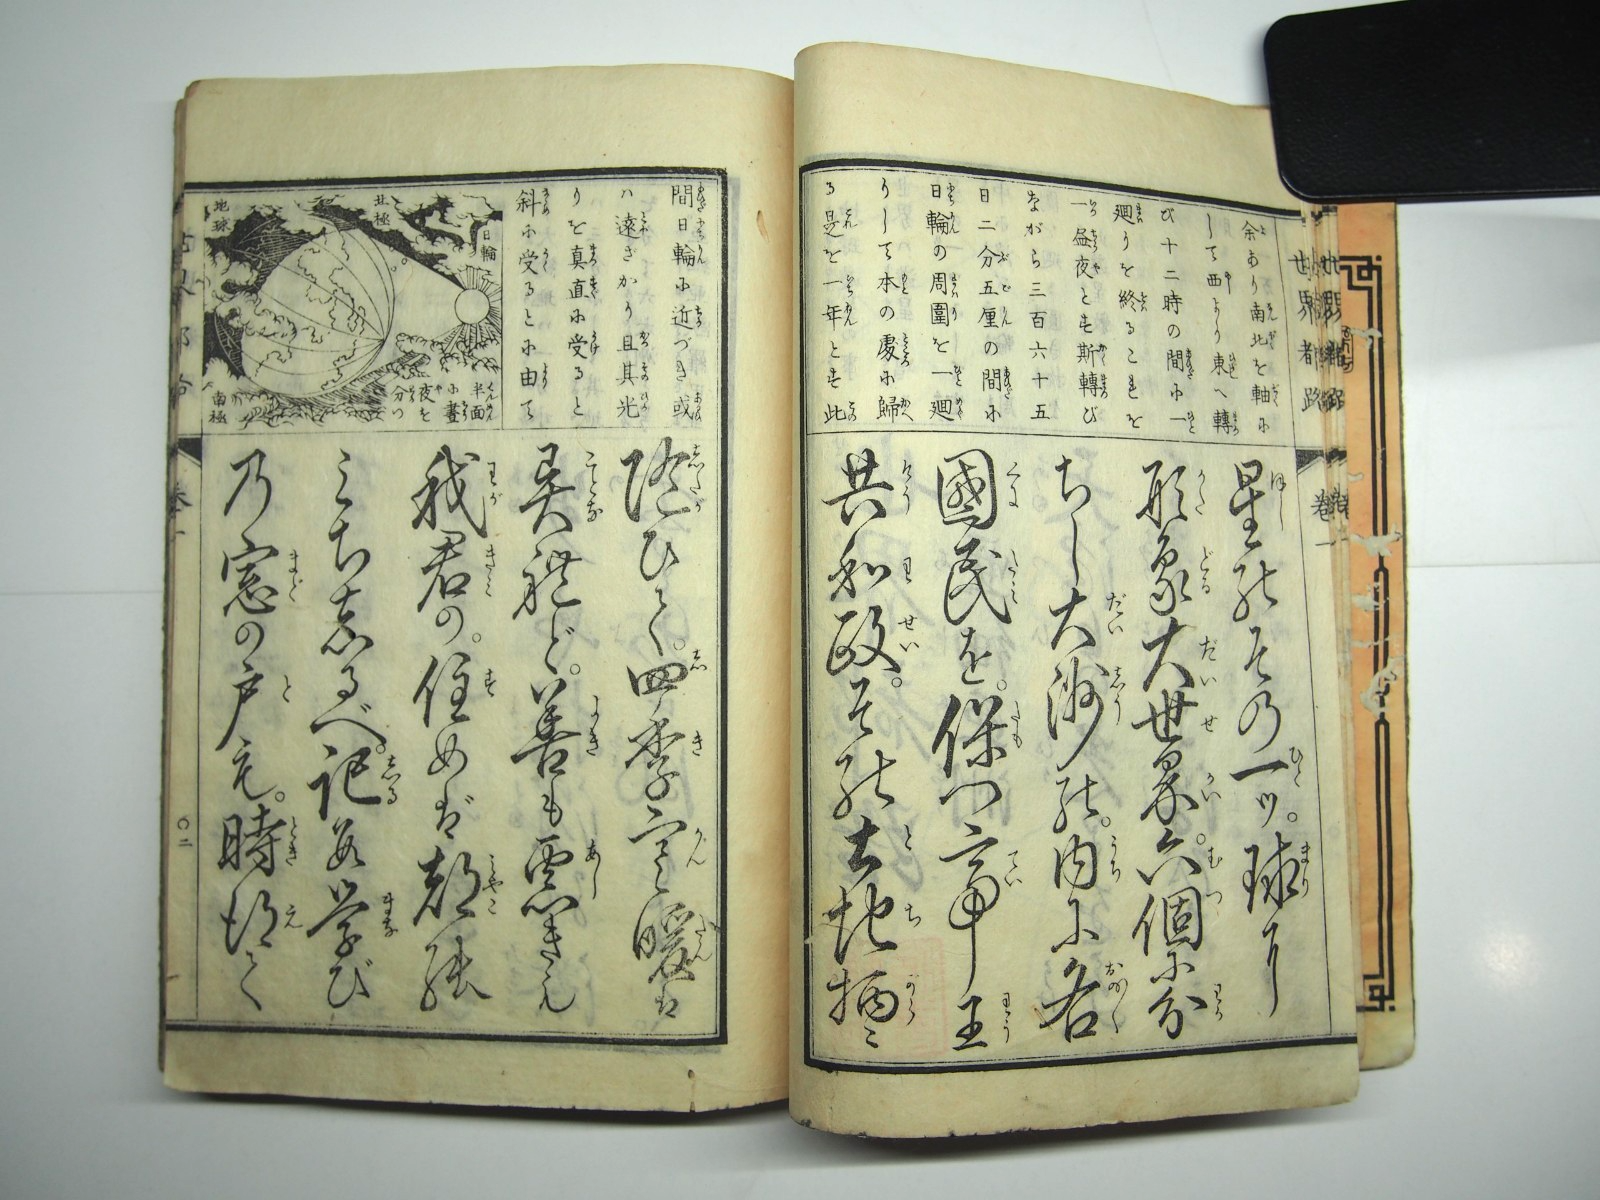 世界都路
巻一
余あり南北を軸に
して西より東へ轉
び十二時の間に一
廻りを終ることを
一昼夜とす斯轉び
ながら三百六十五
日二分五厘の間に
日輪の周圍を一廻
りして本の處に歸
る是を一年とす此
星能その一ツ。球なり
形象大世界。六個に分
ちし大洲能。内に各
國民を。保つ帝王
共和政。その土地柄に
間日輪に近づき或
ハ遠ざかり且其光
りを真直に受ると
斜に受るとに由て
日輪
北極
地球
南極
半面
に晝
夜を
分つ
随ひて。四季寒暖も
異れど。善も悪きも
我君の。住めば都能
ミちしるべ。記え学び
乃窓の戸も。時得て
〇二